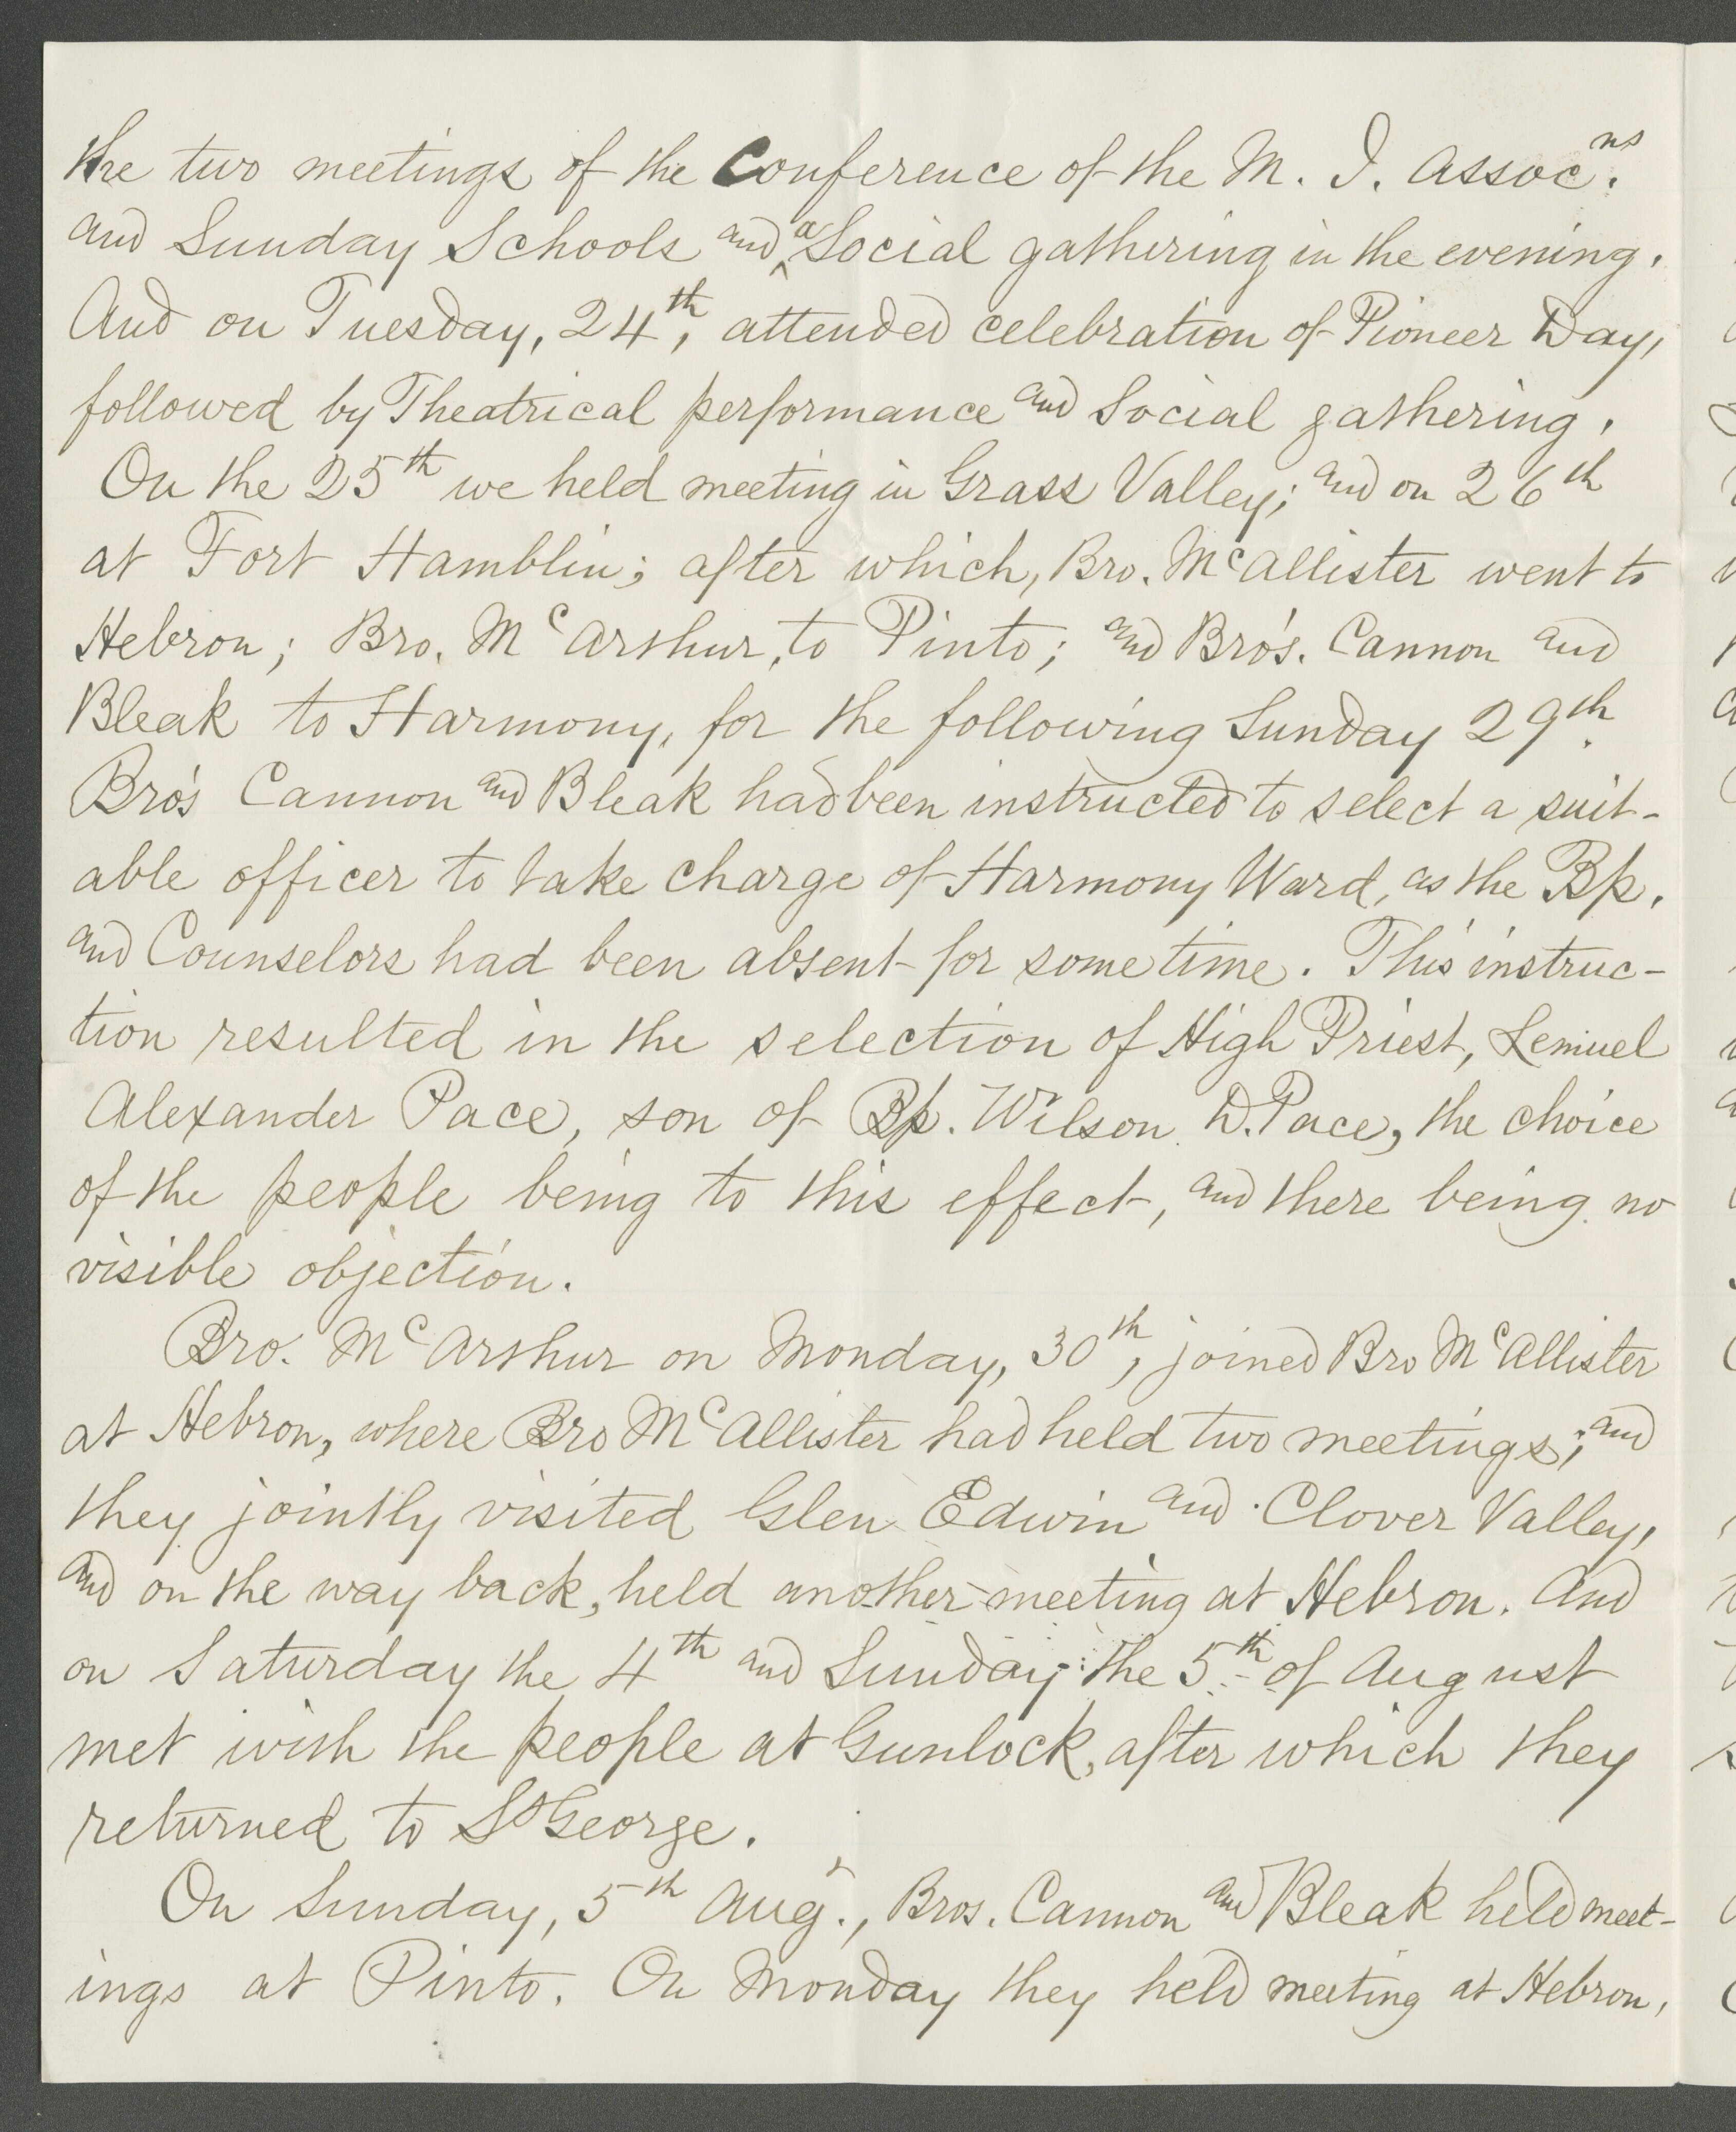 the two meetings of the Conference of the M. I. Assocns.
and Sunday Schools and a Social gathering in the evening.
And on Tuesday, 24th, attended celebration of Pioneer Day,
followed by Theatrical performance and Social gathering.
On the 25th we held meeting in Grass Valley; and on 26th
at Fort Hamblin; after which, Bro. McAllister went to
Hebron; Bro. McArthur, to Pinto; and Bro's. Cannon and
Bleak to Harmony, for the following Sunday 29th.
Bro's Cannon and Bleak had been instructed to select a suit-
able officer to take charge of Harmony Ward, as the Bp.
and Counselors had been absent for some time. This instruc-
tion resulted in the selection of High Priest, Lemuel
Alexander Pace, son of Bp. Wilson D. Pace, the choice
of the people being to this effect, and there being no
visible objection.
Bro. McArthur on Monday, 30th, joined Bro McAllister
at Hebron, where Bro McAllister had held two meetings; and
they jointly visited Glen Edwin and Clover Valley,
and on the way back, held another meeting at Hebron. And
on Saturday the 4th and Sunday the 5th of August
met with the people at Gunlock, after which they
returned to St George.
On Sunday, 5th Augt., Bros. Cannon and Bleak held meet-
ings at Pinto. On Monday they held meeting at Hebron,